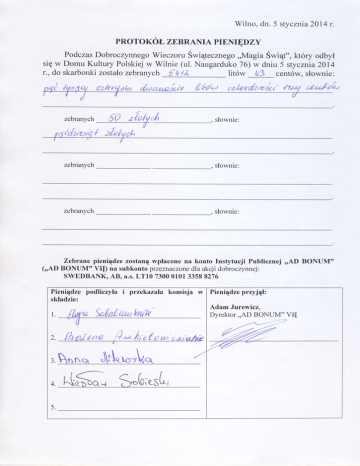 Wilno, dn. 5 stycznia 2014 r.
PROTOKÓŁ ZEBRANIA PIENIĘDZY
Podczas Dobroczynnego Wieczoru Świątecznego „Magia Świąt”, który odbył
się w Domu Kultury Polskiej w Wilnie (ul. Naugarduko 76) w dniu 5 stycznia 2014
r., do skarbonki zostało zebranych 5412 litów 43 centów, słownie:
pięć tysięcy czterysta dwanaście litów czterdzieści trzy centów
zebranych 50 złotych, słownie:
pięćdziesiąt złotych
zebranych, słownie:
zebranych, słownie:
Zebrane pieniądze zostaną wpłacone na konto Instytucji Publicznej „AD BONUM”
(„AD BONUM” VšĮ) na subkonto przeznaczone dla akcji dobroczynnej:
SWEDBANK, AB, a.s. LT10 7300 0101 3358 8276
Pieniądze podliczyła i przekazała komisja w
składzie:
1.
2. Bożena
3. Anna
4. Wiesław Sobieski
5.
Pieniądze przyjął:
Adam Jurewicz,
Dyrektor „AD BONUM” VšĮ